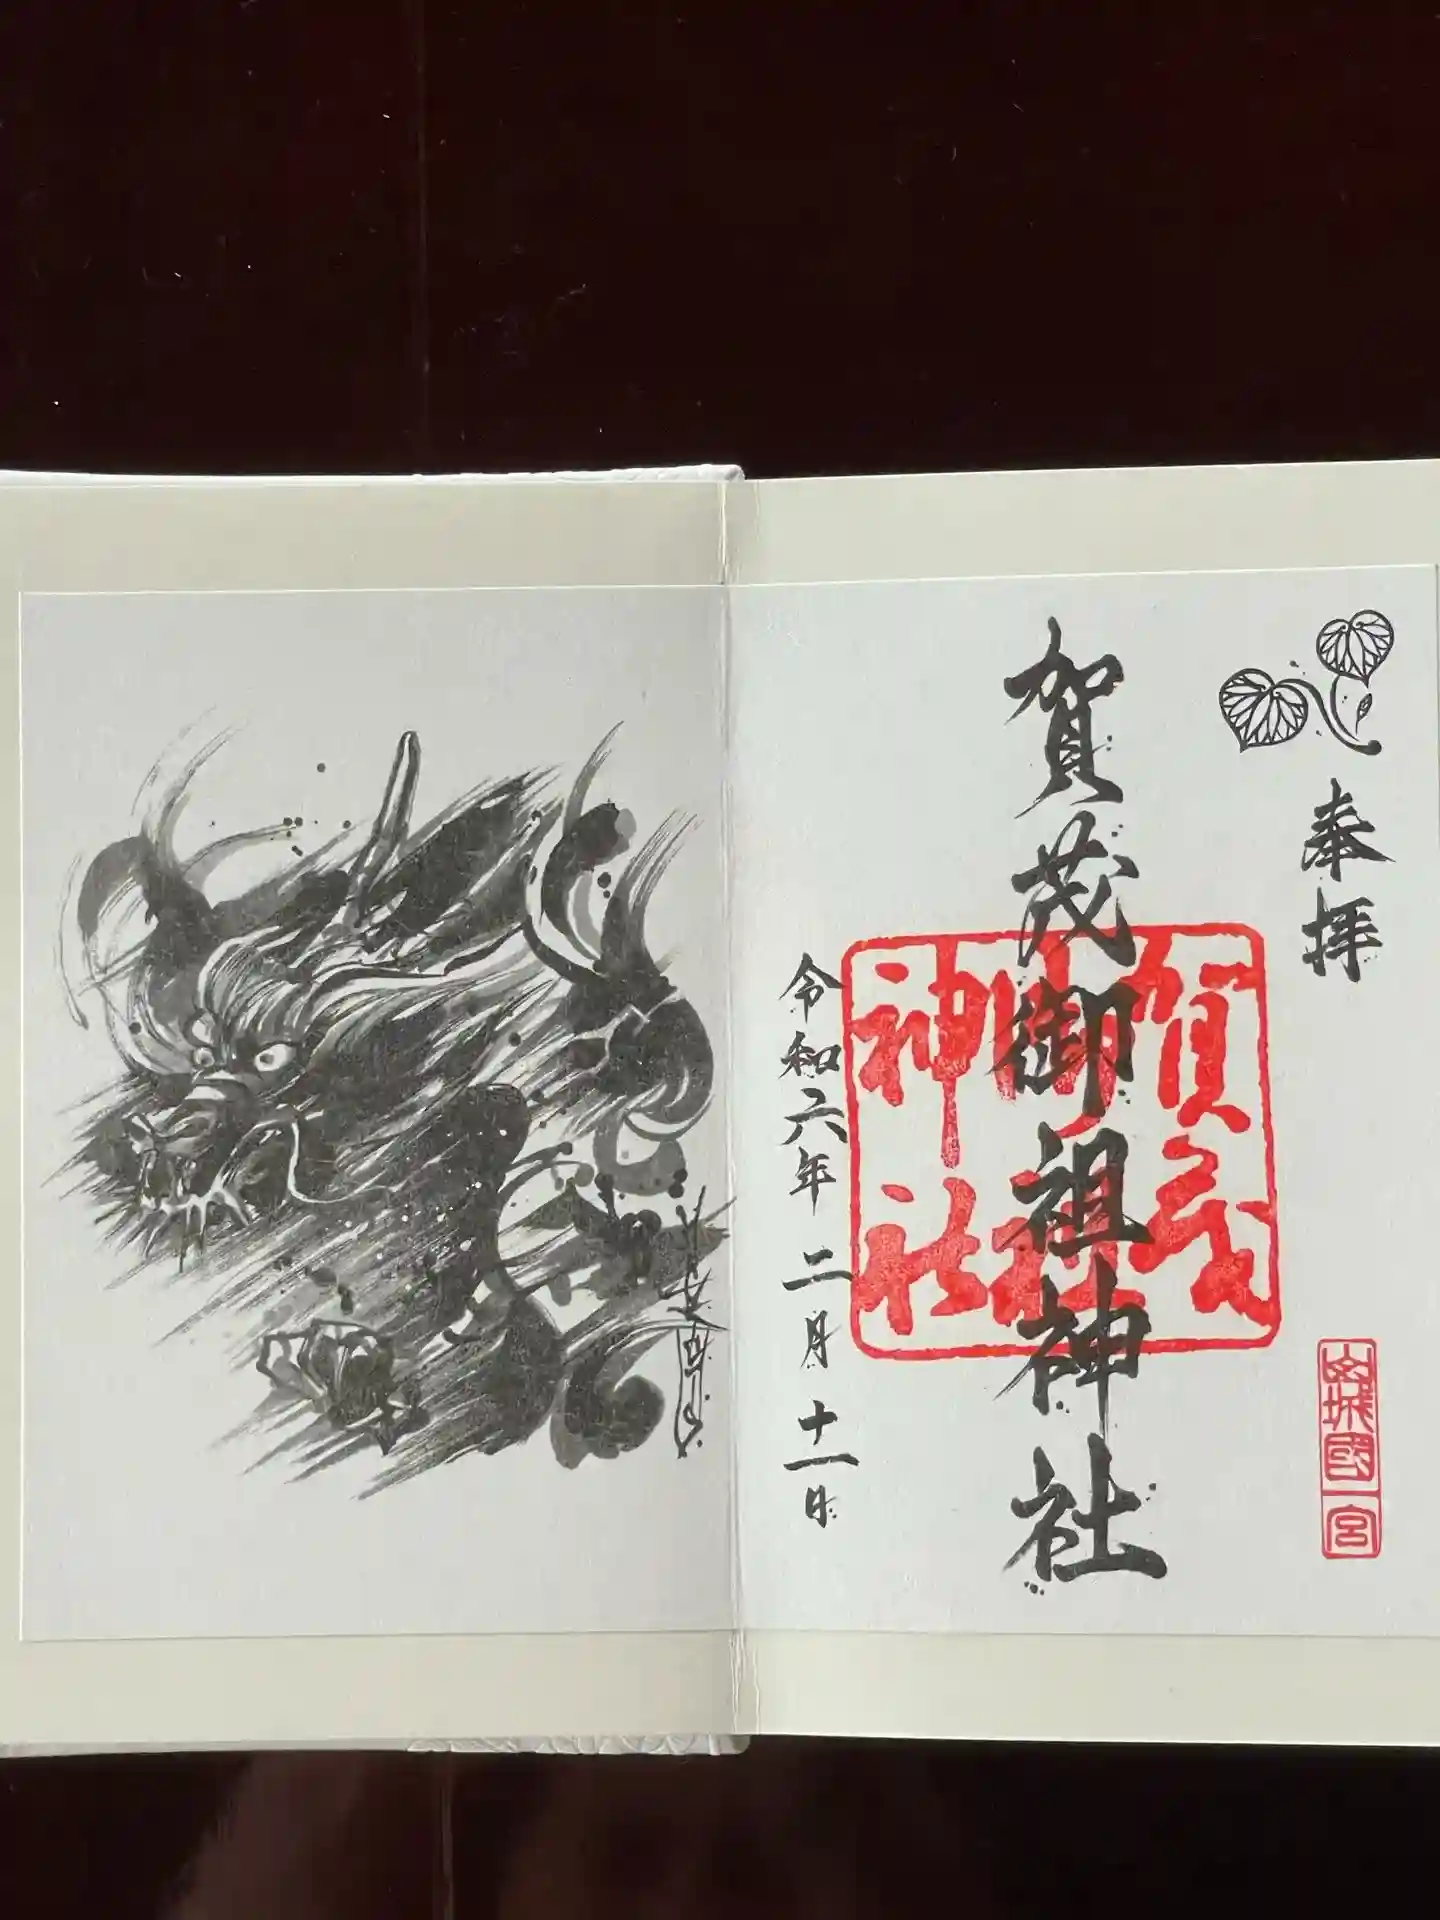 奉拝
山城國一宮
賀茂御祖神社
賀茂御祖神社
令和六年二月十一日